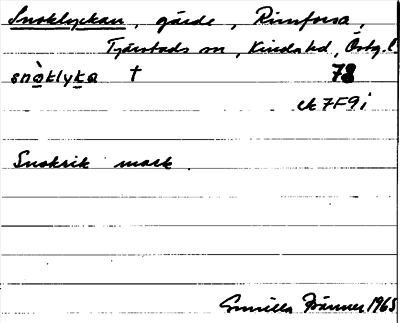 Snoklyckan, gärde, Rimforsa,
Tjärstads sn, Kinda hd, Östg. l.
snòklyka † 78
ek 7F9i
Snokrik mark.
Gunilla Brämer 1965